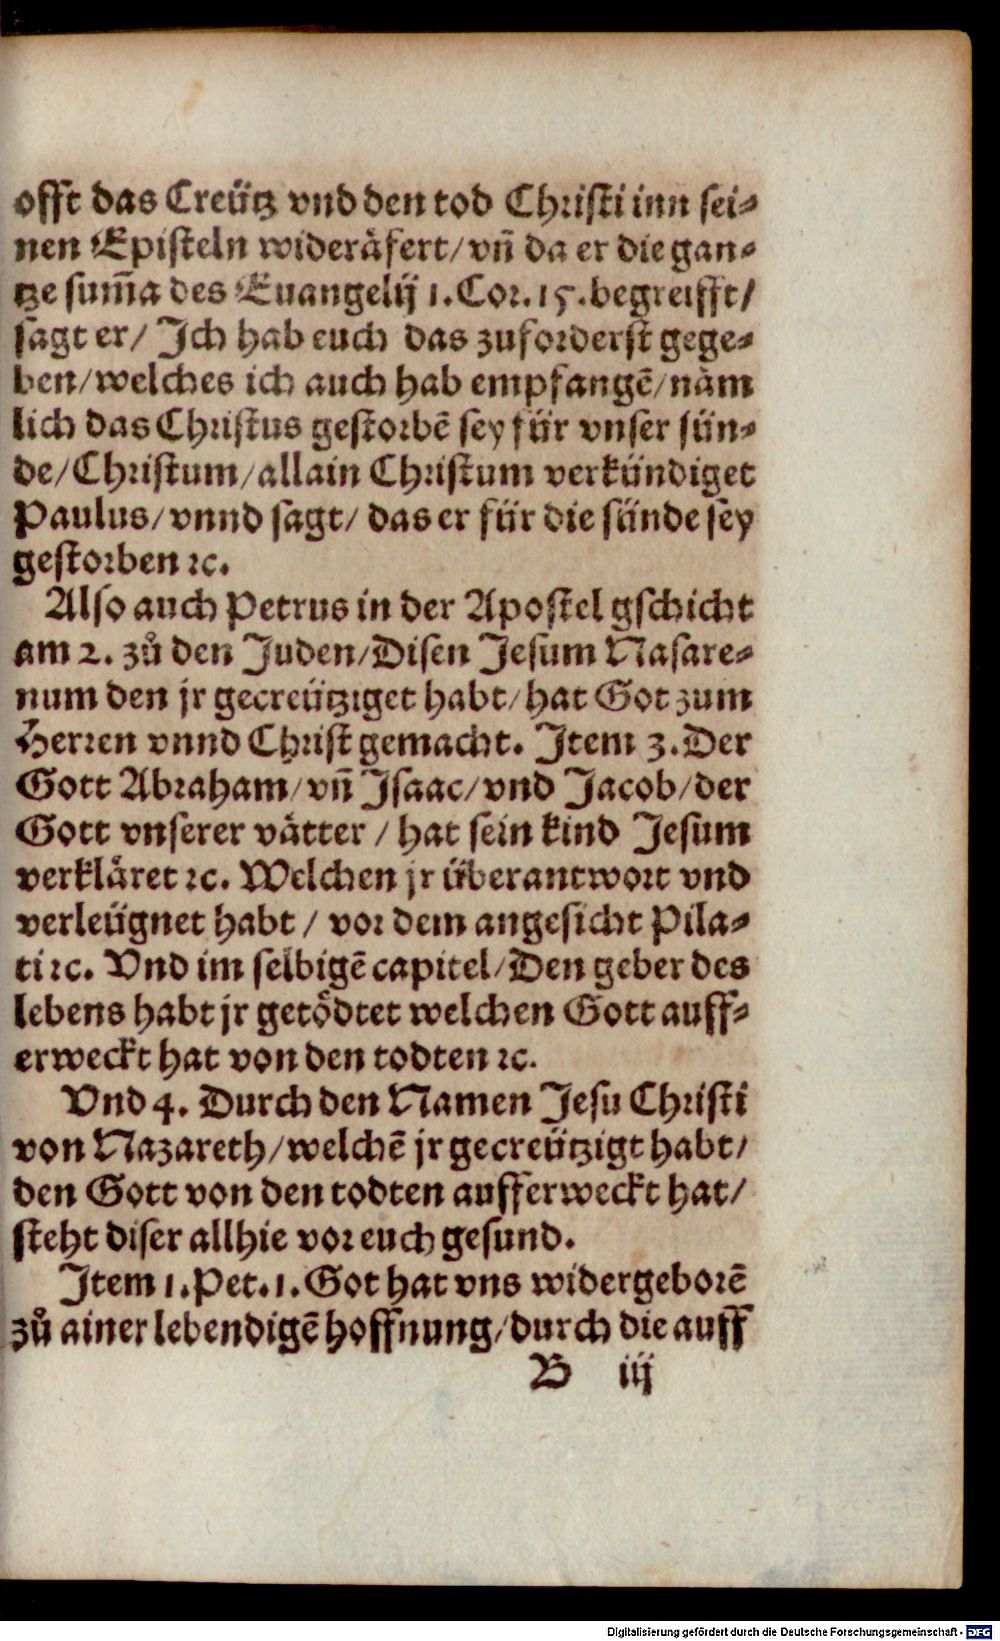 offt das Creütz vnd den tod Christi inn sei-
nen Episteln wideräfert/ vñ da er die gan-
tze sum̃a des Euangelij 1. Cor. 15. begreifft/
sagt er/ Ich hab euch das zuforderst gege-
ben/ welches ich auch hab empfangẽ/ näm
lich das Christus gestorbẽ sey für vnser sün-
de/ Christum/ allain Christum verkündiget
Paulus/ vnnd sagt/ das er für die sünde sey
gestorben ꝛc.
Also auch Petrus in der Apostel gschicht
am 2. zů den Juden/ Disen Jesum Nasare-
num den jr gecreütziget habt/ hat Got zum
Herren vnnd Christ gemacht. Item 3. Der
Gott Abraham/ vñ Isaac/ vnd Jacob/ der
Gott vnserer vätter / hat sein kind Jesum
verkläret ꝛc. Welchen jr überantwort vnd
verleügnet habt / vor dem angesicht Pila-
ti ꝛc. Vnd im selbigẽ capitel/ Den geber des
lebens habt jr getödtet welchen Gott auff-
erweckt hat von den todten ꝛc.
Vnd 4. Durch den Namen Jesu Christi
von Nazareth/ welchẽ jr gecreützigt habt/
den Gott von den todten aufferweckt hat/
steht diser allhie vor euch gesund.
Item 1. Pet. 1. Got hat vns widergeborẽ
zů ainer lebendigẽ hoffnung/ durch die auff
B iij
Digitalisierung gefördert durch die Deutsche Forschungsgemeinschaft - DFG